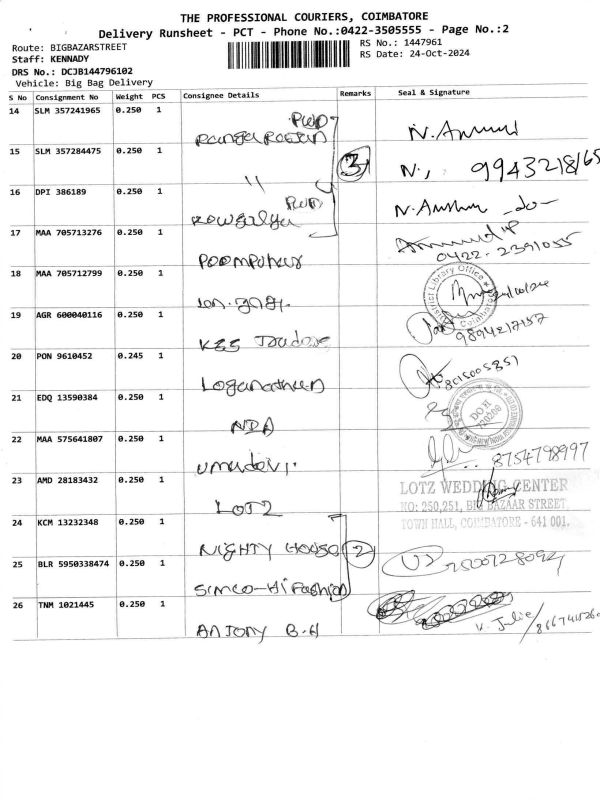 THE PROFESSIONAL COURIERS, COIMBATORE
Delivery Runsheet - PCT - Phone No.:0422-3505555 - Page No.:2
Route: BIGBAZARSTREET
RS No.: 1447961
Staff: KENNADY
RS Date: 24-Oct-2024
DRS No.: DCJB144796102
Vehicle: Big Bag Delivery
S No Consignment No Weight PCS Consignee Details Remarks Seal & Signature
14 SLM 357241965 0.250 1 PWD
N. Anand
15 SLM 357284475 0.250 1 " 3 N, 9943218165
16 DPI 386189 0.250 1 PWD
N. -do-
17 MAA 705713276 0.250 1 Poompuhar
0422-2391055
18 MAA 705712799 0.250 1
District Library Office
19 AGR 600040116 0.250 1 KSS Traders
9894217157
20 PON 9610452 0.245 1 Loganathan
8015005851
21 EDQ 13590384 0.250 1 NDA
22 MAA 575641807 0.250 1 Umadevi.
8754798997
23 AMD 28183432 0.250 1 LOTZ
LOTZ WEDDING CENTER
NO: 250,251, BIG BAZAAR STREET,
TOWN HALL, COIMBATORE - 641 001.
24 KCM 13232348 0.250 1 NIGHTY HOUSE 2
25 BLR 5950338474 0.250 1 SIMCO-HiFashion
26 TNM 1021445 0.250 1 ANTONY B.H
V. Julie/